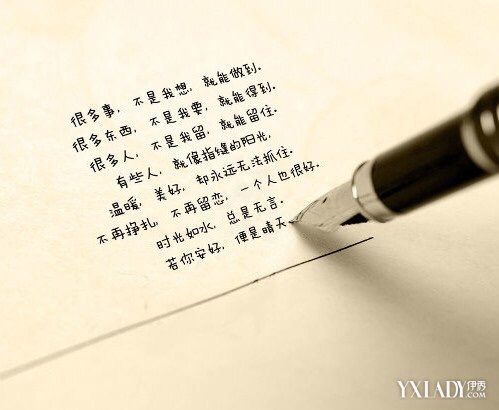 很多事，不是我想，就能做到。
很多东西，不是我要，就能得到。
很多人，不是我留，就能留住。
有些人，就像指缝的阳光，
温暖，美好，却永远无法抓住。
不再挣扎，不再留恋，一个人也很好。
时光如水，总是无言。
若你安好，便是晴天
YXLADY伊秀
.COM